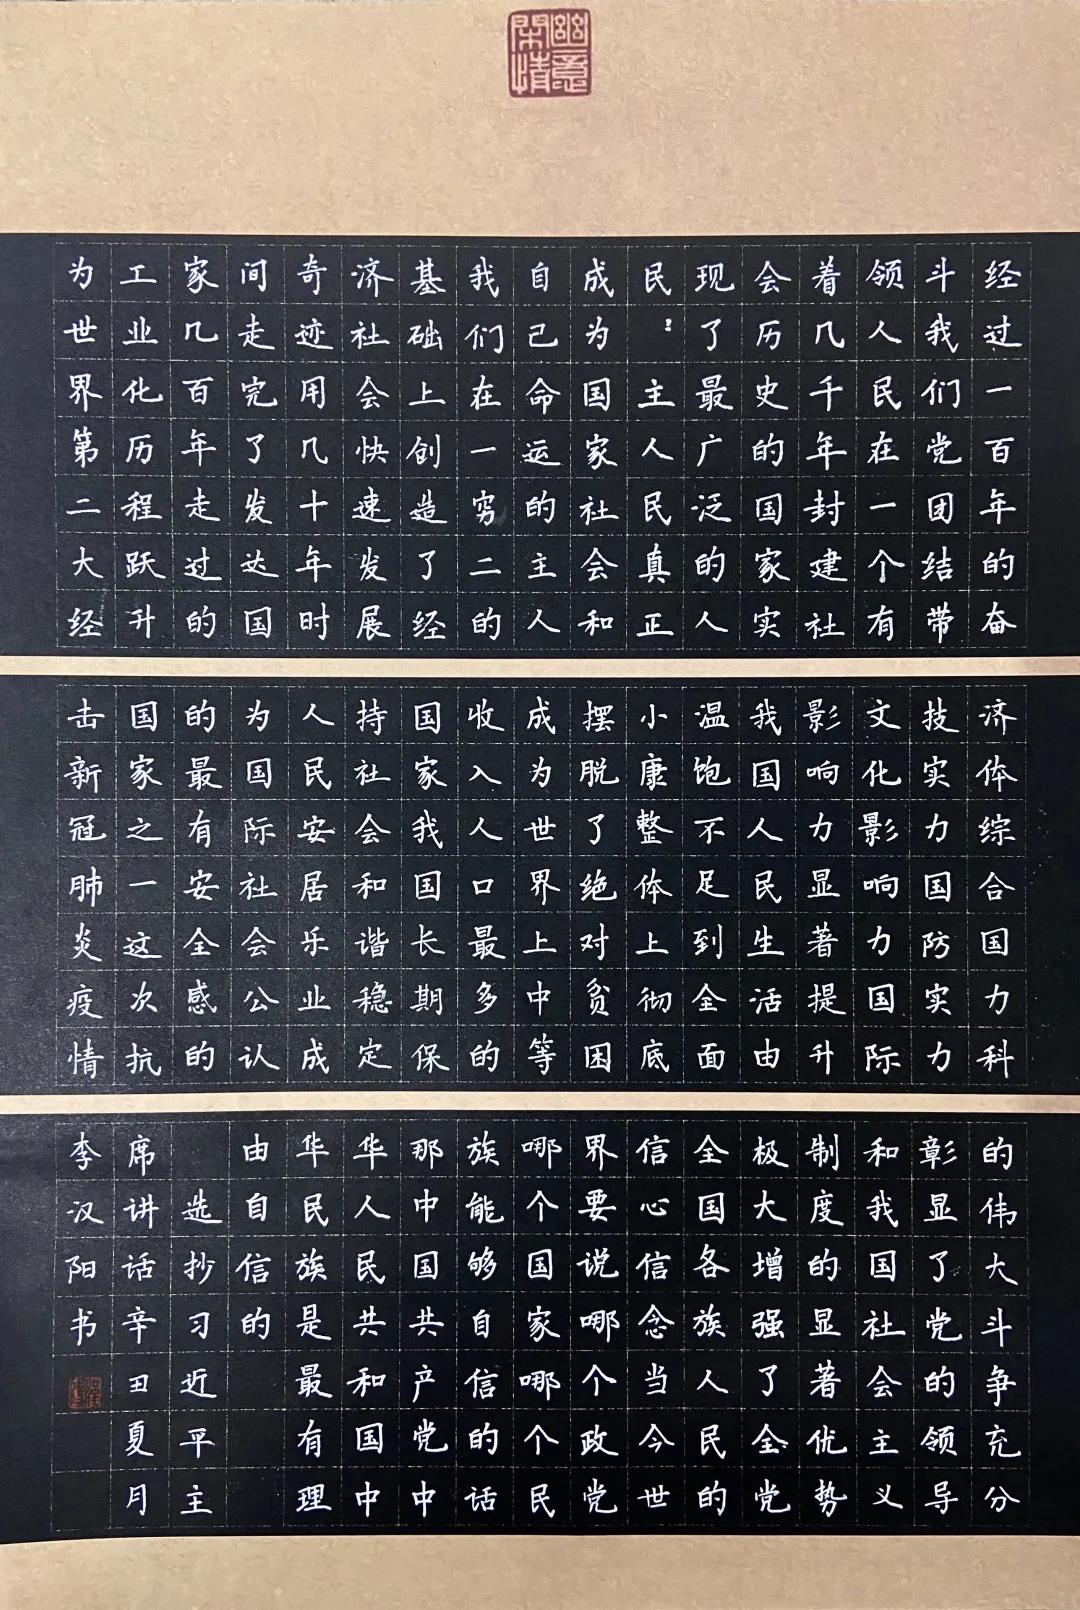 幽意閑情
经过一百年的奋
斗我们党团结带
领人民在一个有
着几千年封建社
会历史的国家实
现了最广泛的人
民〻主人民真正
成为国家社会和
自己命运的主人
我们在一穷二的
基础上创造了经
济社会快速发展
奇迹用几十年时
间走完了发达国
家几百年走过的
工业化历程跃升
为世界第二大经
济体综合国力科
技实力国防实力
文化影响力国际
影响力显著提升
我国人民生活由
温饱不足到全面
小康整体上彻底
摆脱了绝对贫困
成为世界上中等
收入人口最多的
国家我国长期保
持社会和谐稳定
人民安居乐业成
为国际社会公认
的最有安全感的
国家之一这次抗
击新冠肺炎疫情
的伟大斗争充分
彰显了党的领导
和我国社会主义
制度的显著优势
极大增强了全党
全国各族人民的
信心信念当今世
界要说哪个政党
哪个国家哪个民
族能够自信的话
那中国共产党中
华人民共和国中
华民族是最有理
由自信的
选抄习近平主
席讲话辛丑夏月
李汉阳书